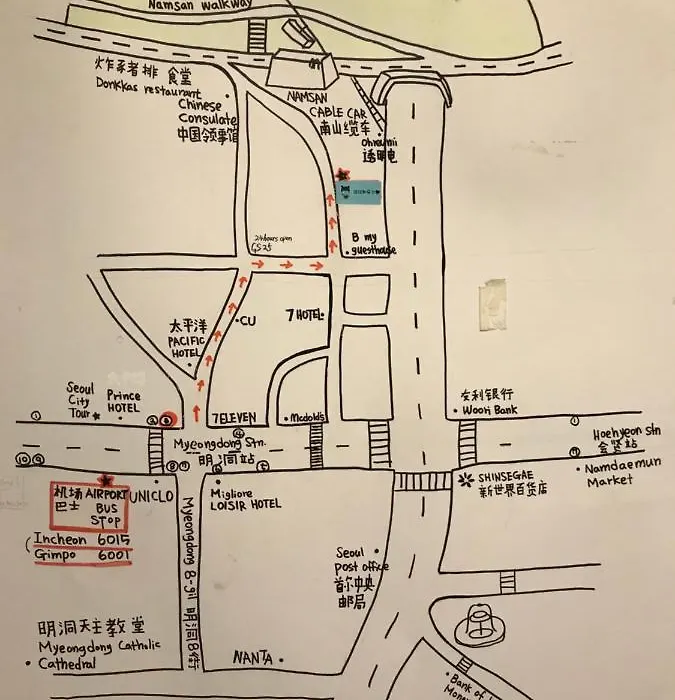 Namsan Walkway
炸豕者排 食堂
Donkkas restaurant
Chinese
Consulate
中国领事馆
NAMSAN
CABLE CAR
南山缆车
24hours open
GS25
B my
guesthouse
太平洋
PACIFIC
HOTEL
CU
7 HOTEL
Seoul
City
Tour
Prince
HOTEL
7ELEVEN
Mcdold's
友利银行
Woori Bank
①
①
Myeongdong Stn.
明洞站
Hoehyeon Stn
会贤站
Namdaemun
Market
机场 AIRPORT
巴士 BUS
STOP
UNICLO
Incheon 6015
Gimpo 6001
Migliore
LOISIR HOTEL
SHINSEGAE
新世界百货店
Myeongdong 8-gil 明洞8街
Seoul
post office
首尔中央
邮局
明洞天主教堂
Myeongdong Catholic
Cathedral
NANTA
Bank of